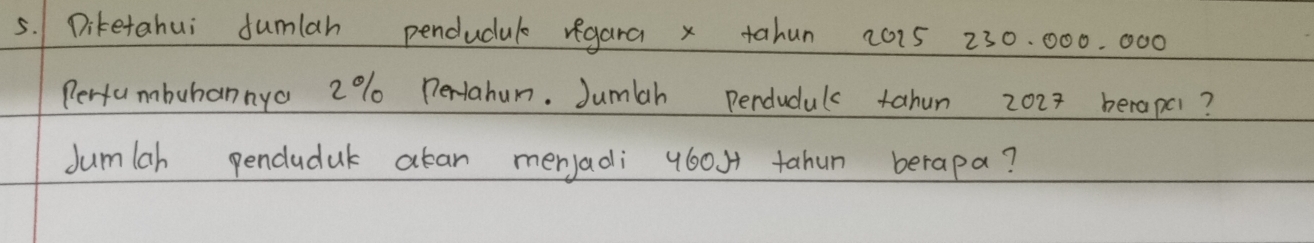 5. Diketahui Jumlah penduduk negara x tahun 2025 230.000.000
Pertumbuhannya 2% Pertahun. Jumlah Penduduk tahun 2027 berapa?
Jumlah penduduk akan menjadi 460Jt tahun berapa?